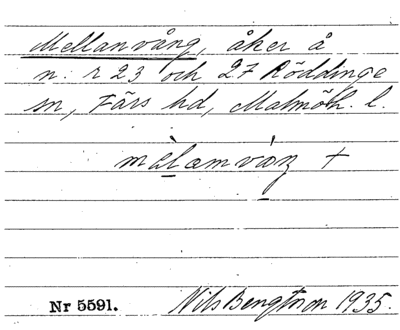 Mellanvång, åker å
n. r 23 och 27 Röddinge
sn, Färs hd, Malmöh. l.
mèlamváŋ +
Nr 5591. Nils Bengtsson 1935.